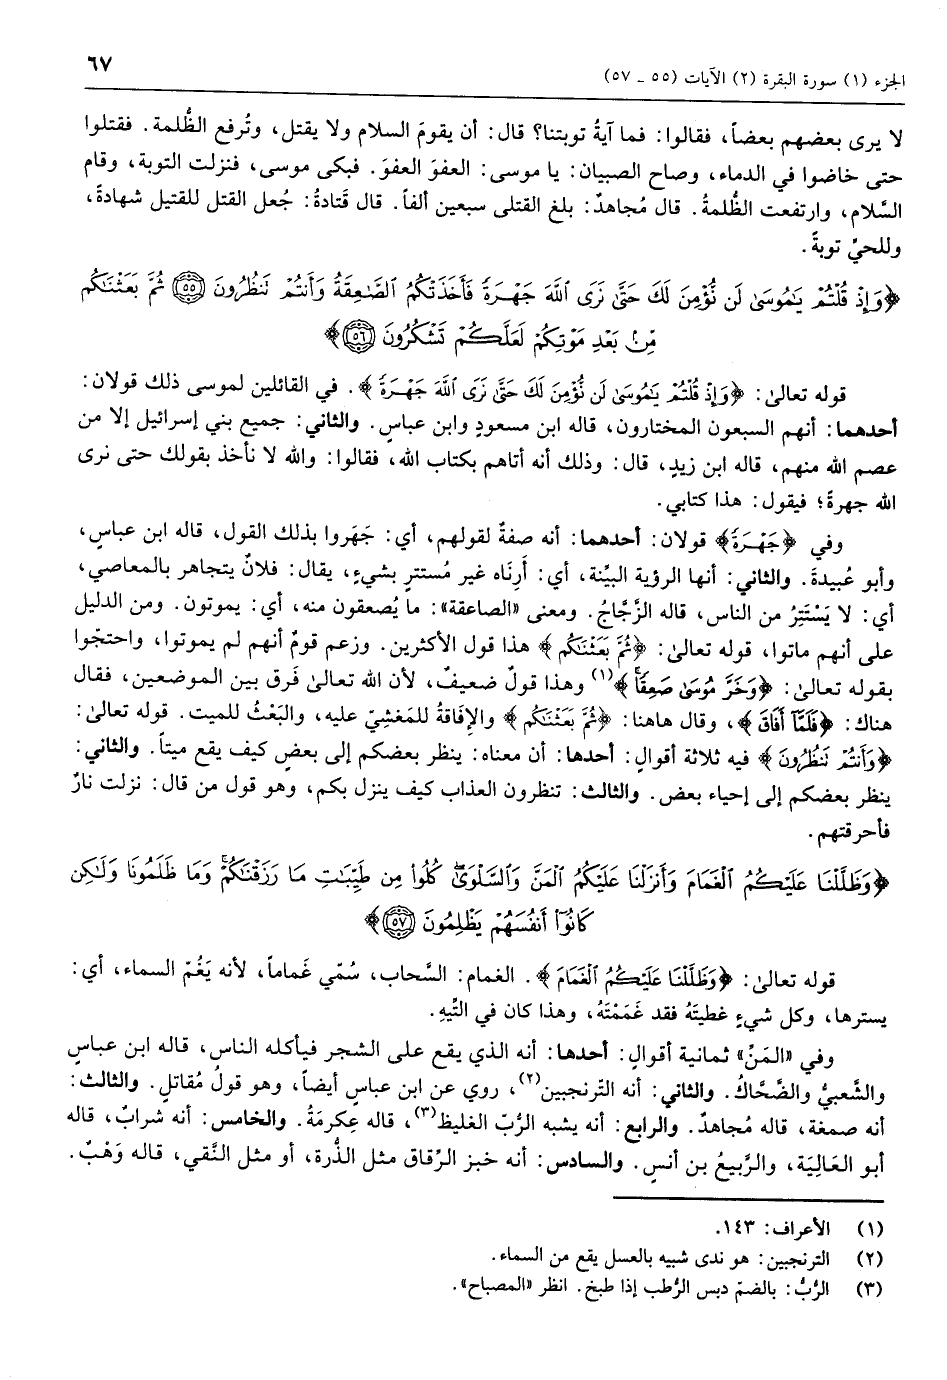 الجزء (١) سورة البقرة (٢) الآيات (٥٥ - ٥٧)
٦٧
لا يرى بعضهم بعضاً، فقالوا: فما آيةُ توبتنا؟ قال: أن يقومَ السلام ولا يقتل، وتُرفع الظُّلمة. فقتلوا
حتى خاضوا في الدماء، وصاح الصبيان: يا موسى: العفوَ العفوَ. فبكى موسى، فنزلت التوبة، وقام
السَّلام، وارتفعت الظُّلمةُ. قال مُجاهدٌ: بلغ القتلى سبعين ألفاً. قال قَتادةُ: جُعل القتل للقتيل شهادةً،
وللحيِّ توبةً.
﴿وَإِذْ قُلْتُمْ يَٰمُوسَىٰ لَن نُّؤْمِنَ لَكَ حَتَّىٰ نَرَى ٱللَّهَ جَهْرَةً فَأَخَذَتْكُمُ ٱلصَّٰعِقَةُ وَأَنتُمْ تَنظُرُونَ ۝٥٥ ثُمَّ بَعَثْنَٰكُم
مِّنۢ بَعْدِ مَوْتِكُمْ لَعَلَّكُمْ تَشْكُرُونَ ۝٥٦﴾
قوله تعالىٰ: ﴿وَإِذْ قُلْتُمْ يَٰمُوسَىٰ لَن نُّؤْمِنَ لَكَ حَتَّىٰ نَرَى ٱللَّهَ جَهْرَةً﴾. في القائلين لموسى ذلك قولان:
أحدهما: أنهم السبعون المختارون، قاله ابن مسعودٍ وابن عباسٍ. والثاني: جميع بني إسرائيل إلا من
عصم الله منهم، قاله ابن زيدٍ، قال: وذلك أنه أتاهم بكتاب الله، فقالوا: والله لا نأخذ بقولك حتى نرى
الله جهرةً؛ فيقول: هذا كتابي.
وفي ﴿جَهْرَةً﴾ قولان: أحدهما: أنه صفةٌ لقولهم، أي: جَهَروا بذلك القول، قاله ابن عباسٍ،
وأبو عُبيدةَ. والثاني: أنها الرؤية البيِّنة، أي: أرِنَاه غير مُستترٍ بشيءٍ، يقال: فلانٌ يتجاهر بالمعاصي،
أي: لا يَسْتَتِرُ من الناس، قاله الزَّجَّاجُ. ومعنى «الصاعقة»: ما يُصعقون منه، أي: يموتون. ومن الدليل
على أنهم ماتوا، قوله تعالىٰ: ﴿ثُمَّ بَعَثْنَٰكُم﴾ هذا قول الأكثرين. وزعم قومٌ أنهم لم يموتوا، واحتجّوا
بقوله تعالىٰ: ﴿وَخَرَّ مُوسَىٰ صَعِقًا﴾(١) وهذا قولٌ ضعيفٌ، لأن الله تعالىٰ فَرق بين الموضعين، فقال
هناك: ﴿فَلَمَّآ أَفَاقَ﴾، وقال هاهنا: ﴿ثُمَّ بَعَثْنَٰكُم﴾ والإفاقةُ للمَغشيّ عليه، والبَعْثُ للميت. قوله تعالىٰ:
﴿وَأَنتُمْ تَنظُرُونَ﴾ فيه ثلاثة أقوالٍ: أحدها: أن معناه: ينظر بعضكم إلى بعضٍ كيف يقع ميتاً. والثاني:
ينظر بعضكم إلى إحياء بعض. والثالث: تنظرون العذاب كيف ينزل بكم، وهو قول من قال: نزلت نارٌ
فأحرقتهم.
﴿وَظَلَّلْنَا عَلَيْكُمُ ٱلْغَمَامَ وَأَنزَلْنَا عَلَيْكُمُ ٱلْمَنَّ وَٱلسَّلْوَىٰ ۖ كُلُوا۟ مِن طَيِّبَٰتِ مَا رَزَقْنَٰكُمْ ۖ وَمَا ظَلَمُونَا وَلَٰكِن
كَانُوٓا۟ أَنفُسَهُمْ يَظْلِمُونَ ۝٥٧﴾
قوله تعالىٰ: ﴿وَظَلَّلْنَا عَلَيْكُمُ ٱلْغَمَامَ﴾. الغمام: السَّحاب، سُمّي غَماماً، لأنه يَغُمّ السماء، أي:
يسترها، وكل شيءٍ غطيتَهُ فقد غَمَمْتَهُ، وهذا كان في التِّيهِ.
وفي «المَنِّ» ثمانية أقوالٍ: أحدها: أنه الذي يقع على الشجر فيأكله الناس، قاله ابن عباسٍ
والشَّعبيُّ والضَّحَّاكُ. والثاني: أنه التَرنجبين(٢)، روي عن ابن عباسٍ أيضاً، وهو قولُ مُقاتلٍ. والثالث:
أنه صمغة، قاله مُجاهدٌ. والرابع: أنه يشبه الرُّبّ الغليظ(٣)، قاله عِكرمَةُ. والخامس: أنه شرابٌ، قاله
أبو العَالِيَة، والرَّبيعُ بن أنسٍ. والسادس: أنه خبز الرِّقاق مثل الذُّرة، أو مثل النَّقي، قاله وَهْبٌ.
(١) الأعراف: ١٤٣.
(٢) الترنجبين: هو ندى شبيه بالعسل يقع من السماء.
(٣) الرُّبُّ: بالضمّ دبس الرُطب إذا طبخ. انظر «المصباح».